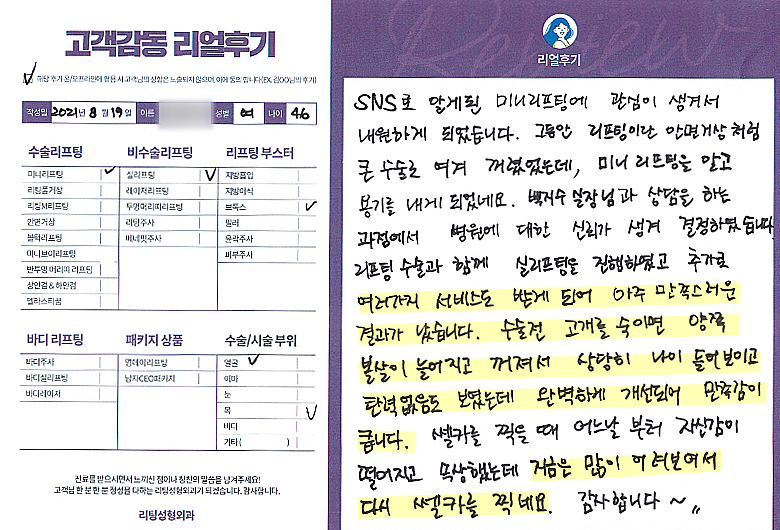 고객감동 리얼후기
해당 후기 온/오프라인에 활용 시 고객님의 성함은 노출되지 않으며, 이에 동의합니다(EX. 김OO님의 후기)
작성일 2021년 8월 19일 이름 성별 여 나이 46
수술리프팅
미니리프팅
리팅풀거상
리팅M리프팅
안면거상
볼턱리프팅
이니브이리프팅
반투명 머리띠 리프팅
상안검 & 하안검
엘라스티꿈
비수술리프팅
실리프팅
레이저리프팅
투명머리띠리프팅
리팅주사
베네핏주사
리프팅 부스터
지방흡입
지방이식
보톡스
필러
윤곽주사
피부주사
바디 리프팅
바디주사
바디실리프팅
바디레이저
패키지 상품
영데이리프팅
남자CEO패키지
수술/시술 부위
얼굴
이마
눈
목
바디
기타 ( )
진료를 받으시면서 느끼신 점이나 칭찬의 말씀을 남겨주세요!
고객님 한 분 한 분 정성을 다하는 리팅성형외과가 되겠습니다. 감사합니다.
리팅성형외과
Review
리얼후기
SNS로 알게된 미니리프팅에 관심이 생겨서
내원하게 되었습니다. 그동안 리프팅이란 안면거상 처럼
큰 수술로 여겨 꺼렸었는데, 미니 리프팅을 알고
용기를 내게 되었네요. 백지수 실장님과 상담을 하는
과정에서 병원에 대한 신뢰가 생겨 결정하였습니다
리프팅 수술과 함께 실리프팅을 진행하였고 추가로
여러가지 서비스도 받게 되어 아주 만족스러운
결과가 났습니다. 수술전 고개를 숙이면 양쪽
볼살이 늘어지고 꺼져서 상당히 나이 들어보이고
탄력없음도 보였는데 완벽하게 개선되어 만족감이
큽니다. 쎌카를 찍을 때 어느날 부터 자신감이
떨어지고 속상했는데 지금은 많이 어려보여서
다시 쎌카를 찍네요. 감사합니다~,,